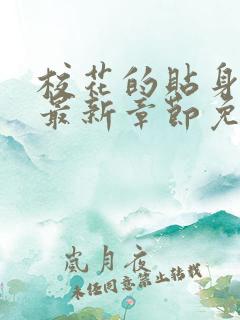 校花的贴身
最新章节免
岚月夜
未经同意禁止转载